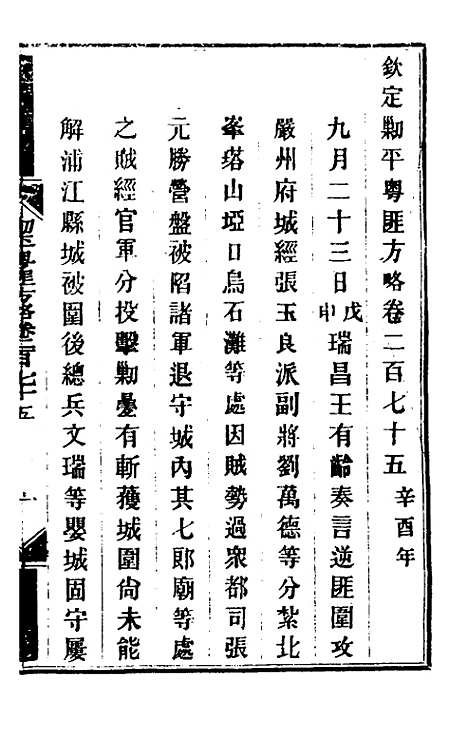 欽定勦平粵匪方略卷二百七十五 辛酉年
九月二十三日戊申瑞昌王有齡奏言逆匪圍攻
嚴州府城經張玉良派副將劉萬德等分紮北
峯塔山埡口烏石灘等處因賊勢過衆都司張
元勝營盤被陷諸軍退守城內其七郎廟等處
之賊經官軍分投擊勦疊有斬獲城圍尙未能
解浦江縣城被圍後總兵文瑞等嬰城固守屢
勦平粵匪方略卷二百七十五 一